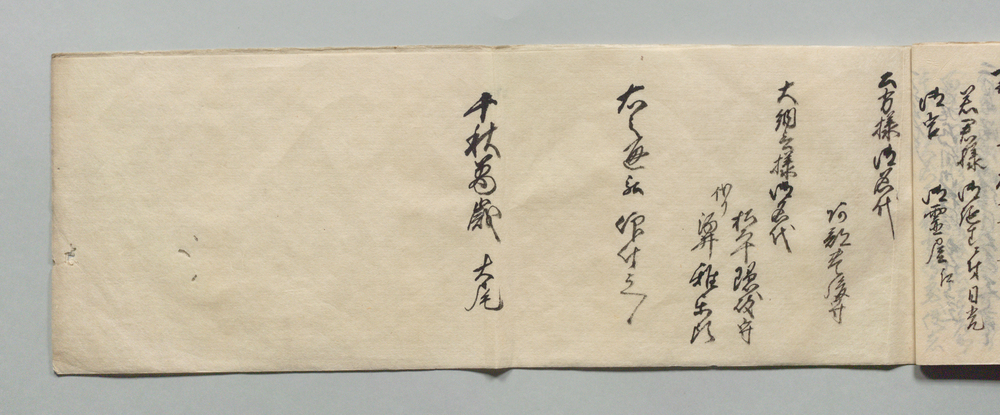 若君様御誕生ニ付日光
御宮　御霊屋江
公方様御名代
阿部豊後守
大納言様御名代
松平隠岐守
代り
酒井雅楽頭
右之通被仰付之
千秋萬歳　大尾